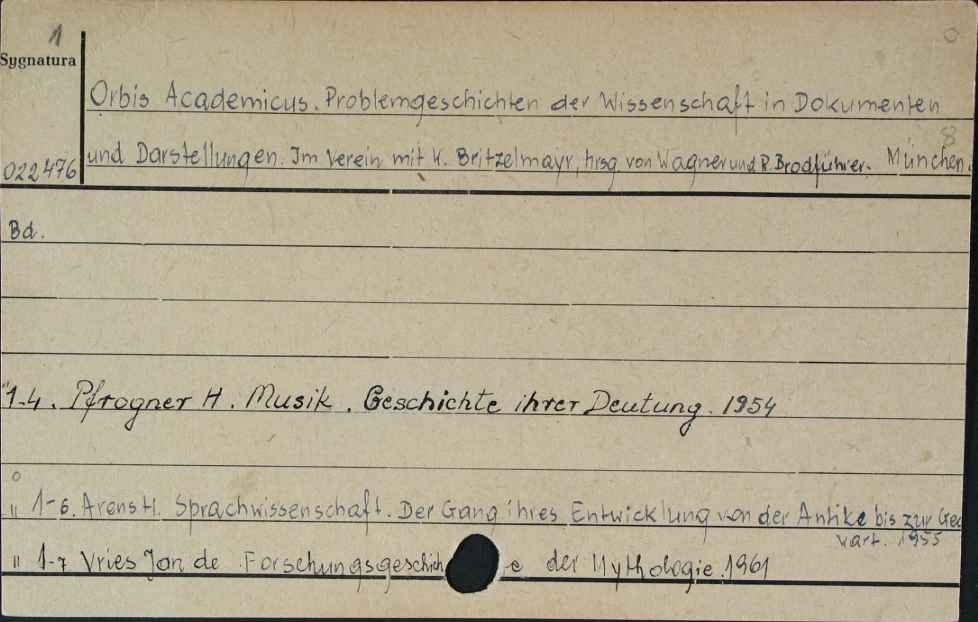 1
Sygnatura
Orbis Academicus. Problemgeschichten der Wissenschaft in Dokumenten
022476 und Darstellungen. Im Verein mit K. Britzelmayr, hrsg. von Wagner und R. Brodführer. München.
8
Bd.
"1-4. Pfrogner H. Musik. Geschichte ihrer Deutung. 1954
" 1-6. Arens H. Sprachwissenschaft. Der Gang ihres Entwicklung von der Antike bis zur Geg
wart. 1955
" 1-7 Vries Jan de Forschungsgeschich e der Mythologie. 1961